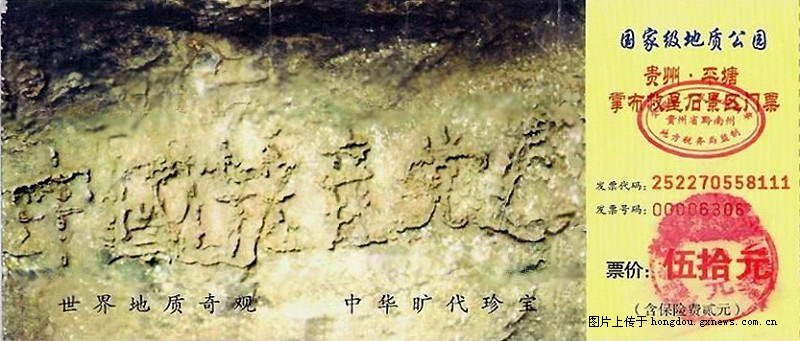 中國共産党亡
世界地质奇观 中华旷代珍宝
国家级地质公园
贵州·平塘
掌布救星石景区门票
贵州省黔南州
地方税务局监制
发票代码：252270558111
发票号码：00006306
票价：伍拾元
（含保险费贰元）
图片上传于 hongdou.gxnews.com.cn